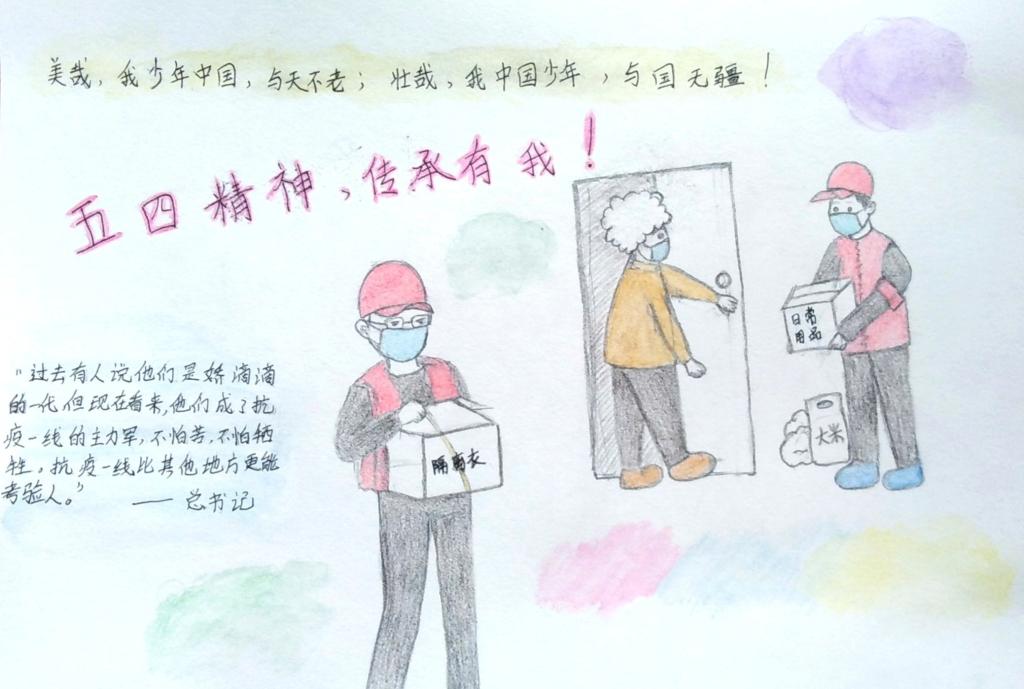 美哉，我少年中国，与天不老；壮哉，我中国少年，与国无疆！
五四精神，传承有我！
"过去有人说他们是娇滴滴
的一代，但现在看来，他们成了抗
疫一线的主力军，不怕苦，不怕牺
牲。抗疫一线比其他地方更能
考验人。"
—— 总书记
隔离衣
日常
用品
大米